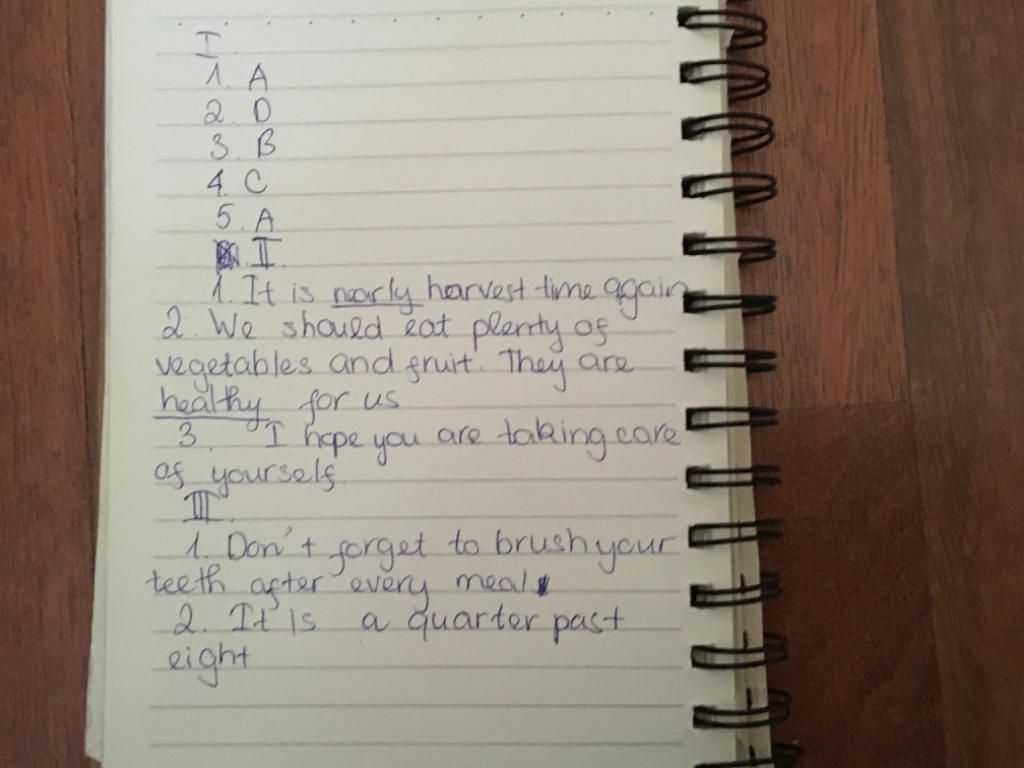 I
1. A
2. D
3. B
4. C
5. A
II
1. It is nearly harvest time again
2. We should eat plenty of
vegetables and fruit. They are
healthy for us
3. I hope you are taking care
of yourself.
III
1. Don't forget to brush your
teeth after every meal
2. It is a quarter past
eight